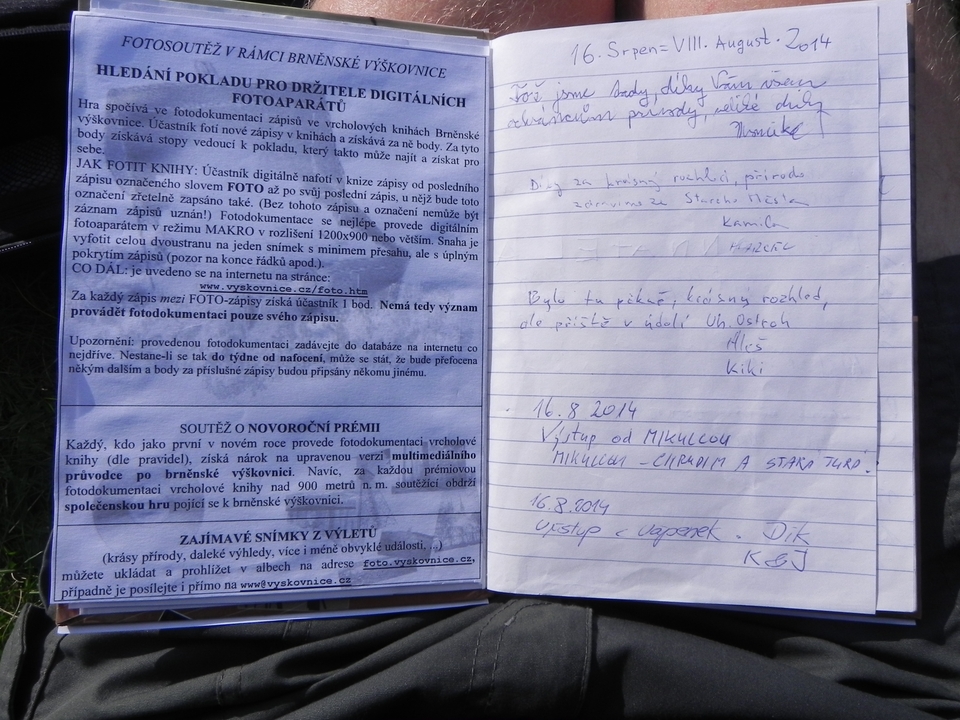 FOTOSOUTĚŽ V RÁMCI BRNĚNSKÉ VÝŠKOVNICE
HLEDÁNÍ POKLADU PRO DRŽITELE DIGITÁLNÍCH
FOTOAPARÁTŮ
Hra spočívá ve fotodokumentaci zápisů ve vrcholových knihách Brněnské
výškovnice. Účastník fotí nové zápisy v knihách a získává za ně body. Za tyto
body získává stopy vedoucí k pokladu, který takto může najít a získat pro
sebe.
JAK FOTIT KNIHY: Účastník digitálně nafotí v knize zápisy od posledního
zápisu označeného slovem FOTO až po svůj poslední zápis, u nějž bude toto
označení zřetelně zapsáno také. (Bez tohoto zápisu a označení nemůže být
záznam zápisů uznán!) Fotodokumentace se nejlépe provede digitálním
fotoaparátem v režimu MAKRO v rozlišení 1200x900 nebo větším. Snaha je
vyfotit celou dvoustranu na jeden snímek s minimem přesahu, ale s úplným
pokrytím zápisů (pozor na konce řádků apod.).
CO DÁL: je uvedeno se na internetu na stránce:
www.vyskovnice.cz/foto.htm
Za každý zápis mezi FOTO-zápisy získá účastník 1 bod. Nemá tedy význam
provádět fotodokumentaci pouze svého zápisu.
Upozornění: provedenou fotodokumentaci zadávejte do databáze na internetu co
nejdříve. Nestane-li se tak do týdne od nafocení, může se stát, že bude přefocena
někým dalším a body za příslušné zápisy budou připsány někomu jinému.
SOUTĚŽ O NOVOROČNÍ PRÉMII
Každý, kdo jako první v novém roce provede fotodokumentaci vrcholové
knihy (dle pravidel), získá nárok na upravenou verzi multimediálního
průvodce po brněnské výškovnici. Navíc, za každou prémiovou
fotodokumentaci vrcholové knihy nad 900 metrů n. m. soutěžící obdrží
společenskou hru pojící se k brněnské výškovnici.
ZAJÍMAVÉ SNÍMKY Z VÝLETŮ
(krásy přírody, daleké výhledy, více i méně obvyklé události, ...)
můžete ukládat a prohlížet v albech na adrese foto.vyskovnice.cz,
případně je posílejte i přímo na www@vyskovnice.cz
16. Srpen = VIII. August. 2014
Tož jsme tady, díky Vám všem
ochráncům přírody, veliké díky
Díky za krásný rozhled, přírodo
zdravíme ze Starého Města
Kamila
Bylo tu pěkně, krásný rozhled,
ale příště v údolí Uh. Ostroh
Aleš
Kiki
16.8 2014
Výstup od MIKULCOU
MIKULCOU - CHRADIM A STARÁ TURÁ.
16.8.2014
výstup z Vápenek. Dík